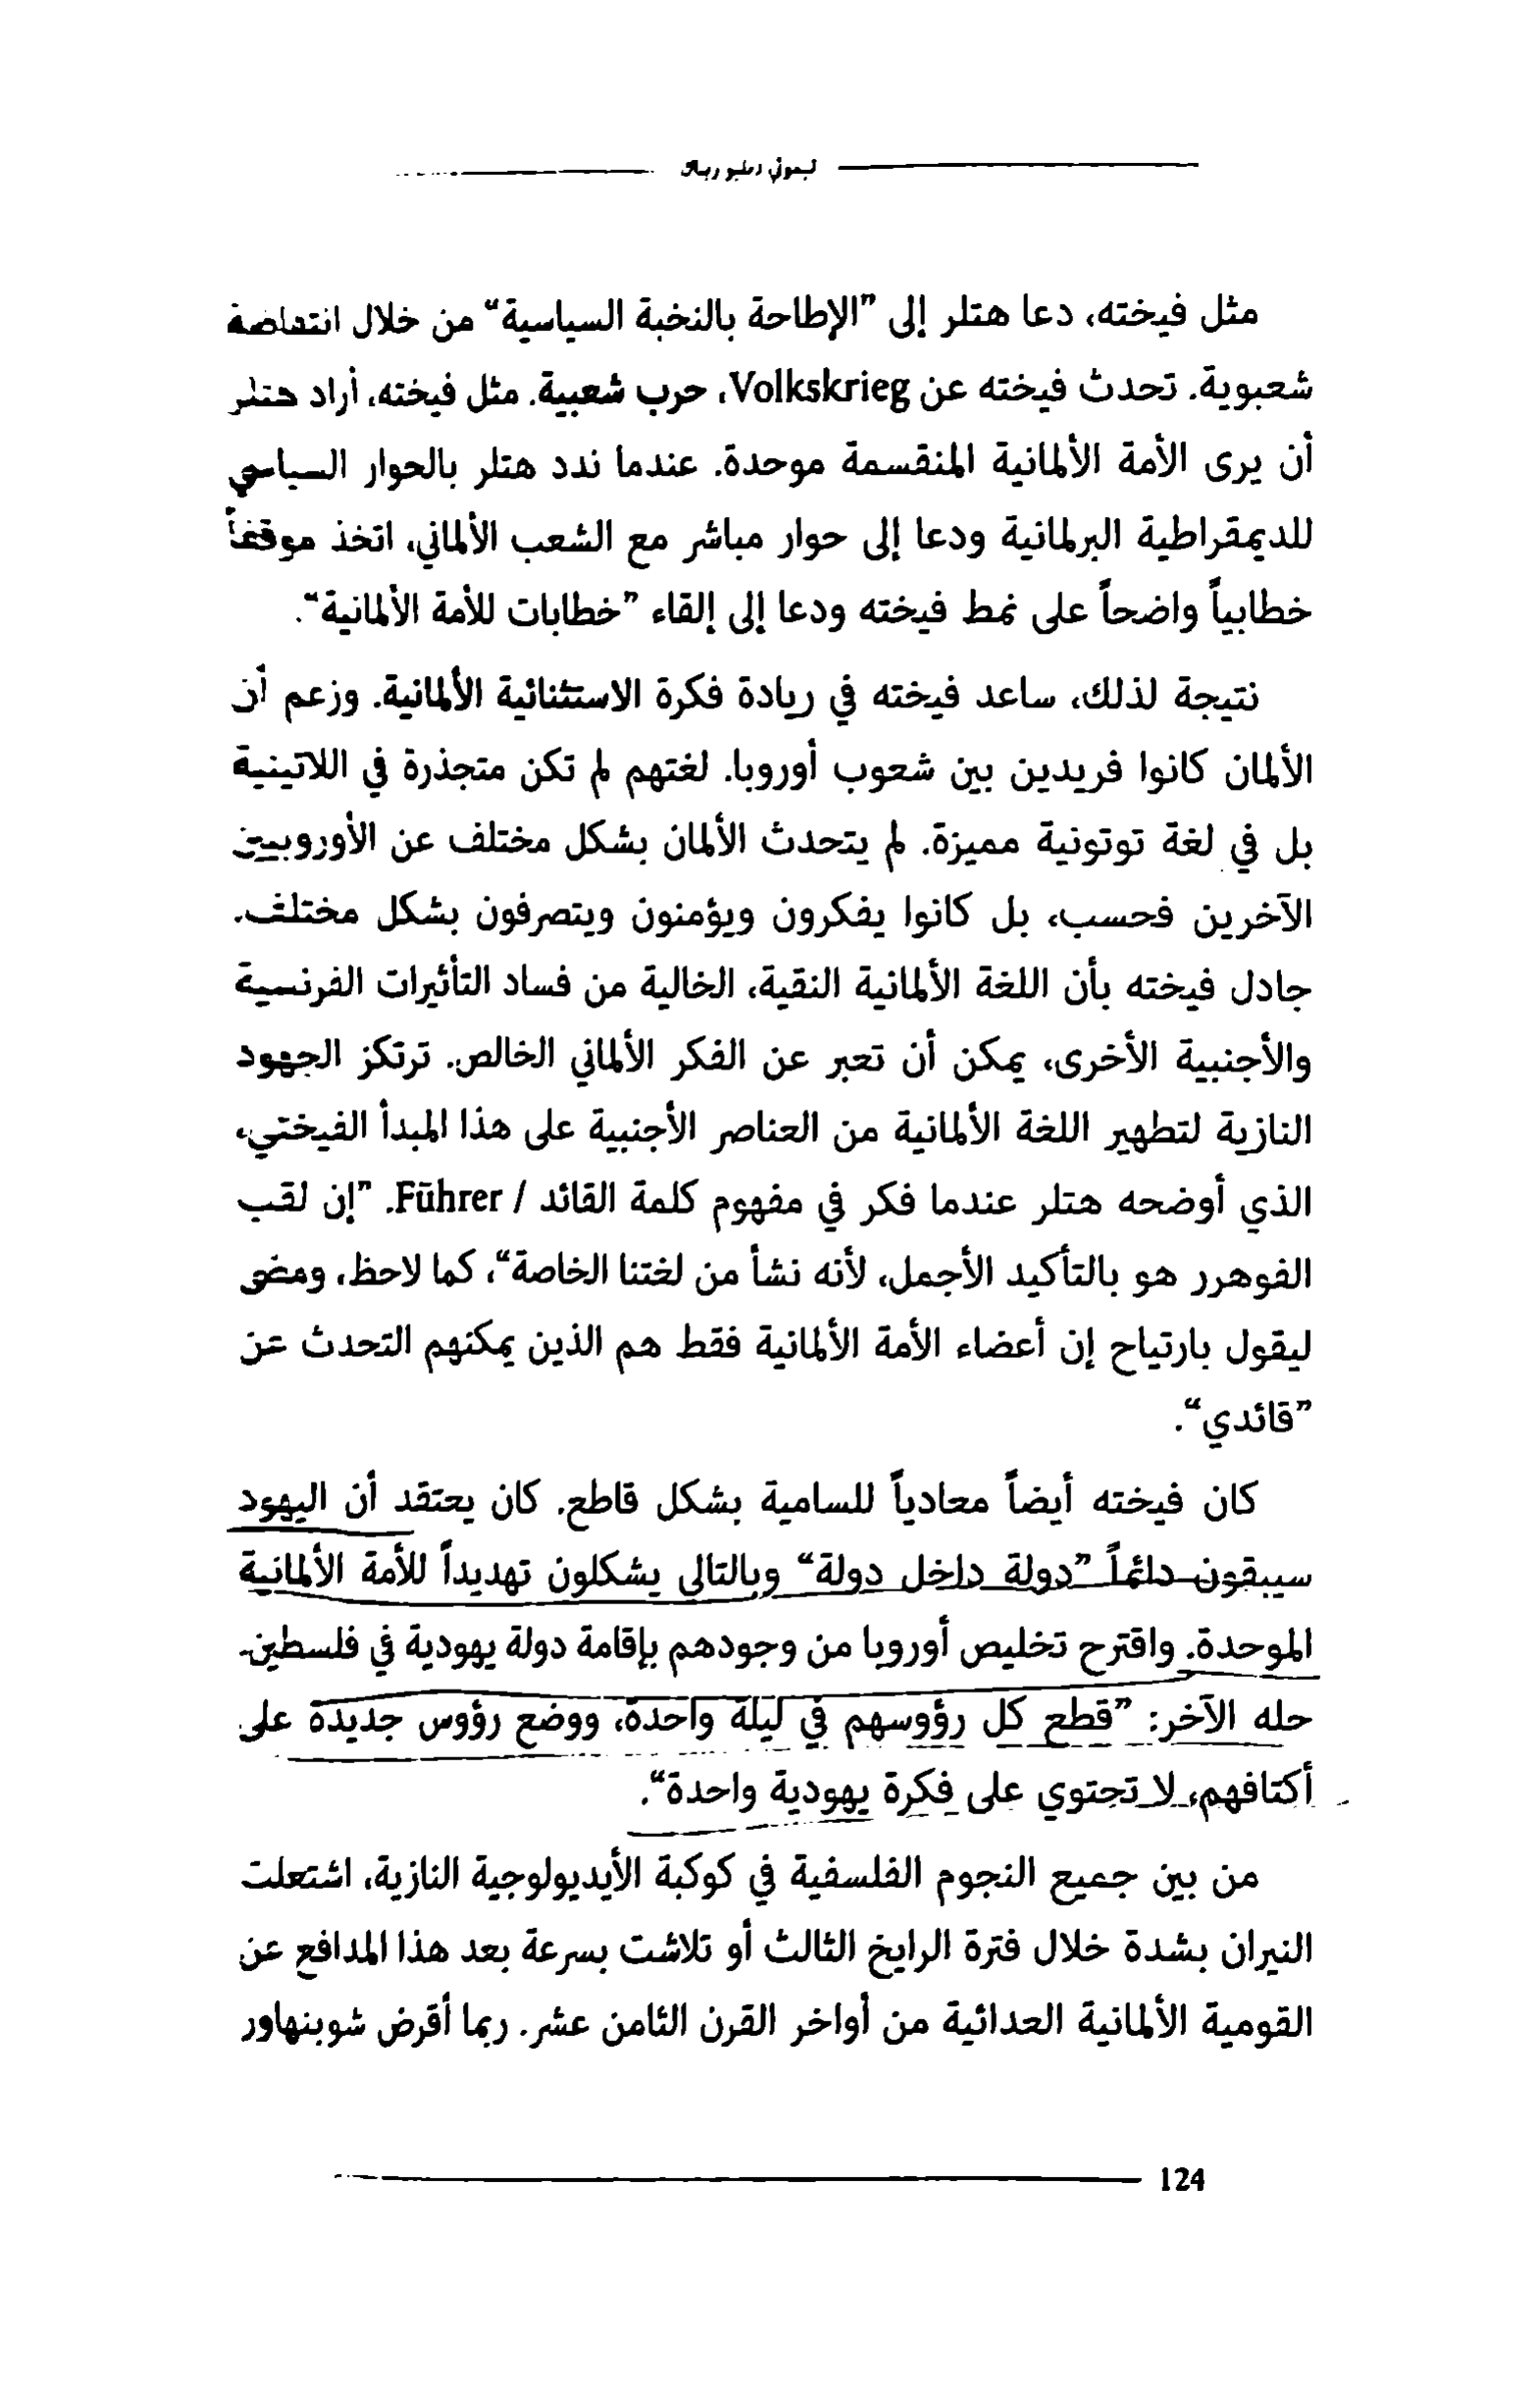 تيموثي دبليو ريباك
مثل فيخته، دعا هتلر إلى ”الإطاحة بالنخبة السياسية“ من خلال انتفاضة
شعبوية. تحدث فيخته عن Volkskrieg، حرب شعبية. مثل فيخته، أراد هتلر
أن يرى الأمة الألمانية المنقسمة موحدة. عندما ندد هتلر بالحوار السياسي
للديمقراطية البرلمانية ودعا إلى حوار مباشر مع الشعب الألماني، اتخذ موقفاً
خطابياً واضحاً على نمط فيخته ودعا إلى إلقاء ”خطابات للأمة الألمانية“.
نتيجة لذلك، ساعد فيخته في ريادة فكرة الاستثنائية الألمانية. وزعم أن
الألمان كانوا فريدين بين شعوب أوروبا. لغتهم لم تكن متجذرة في اللاتينية
بل في لغة توتونية مميزة. لم يتحدث الألمان بشكل مختلف عن الأوروبيين
الآخرين فحسب، بل كانوا يفكرون ويؤمنون ويتصرفون بشكل مختلف.
جادل فيخته بأن اللغة الألمانية النقية، الخالية من فساد التأثيرات الفرنسية
والأجنبية الأخرى، يمكن أن تعبر عن الفكر الألماني الخالص. ترتكز الجهود
النازية لتطهير اللغة الألمانية من العناصر الأجنبية على هذا المبدأ الفيختي،
الذي أوضحه هتلر عندما فكر في مفهوم كلمة القائد / Führer. ”إن لقب
الفوهرر هو بالتأكيد الأجمل، لأنه نشأ من لغتنا الخاصة“، كما لاحظ، ومضى
ليقول بارتياح إن أعضاء الأمة الألمانية فقط هم الذين يمكنهم التحدث عن
”قائدي“.
كان فيخته أيضاً معادياً للسامية بشكل قاطع. كان يعتقد أن اليهود
سيبقون دائماً ”دولة داخل دولة“ وبالتالي يشكلون تهديداً للأمة الألمانية
الموحدة. واقترح تخليص أوروبا من وجودهم بإقامة دولة يهودية في فلسطين.
حله الآخر: ”قطع كل رؤوسهم في ليلة واحدة، ووضع رؤوس جديدة على
أكتافهم، لا تحتوي على فكرة يهودية واحدة“.
من بين جميع النجوم الفلسفية في كوكبة الأيديولوجية النازية، اشتعلت
النيران بشدة خلال فترة الرايخ الثالث أو تلاشت بسرعة بعد هذا المدافع عن
القومية الألمانية العدائية من أواخر القرن الثامن عشر. ربما أقرض شوبنهاور
124